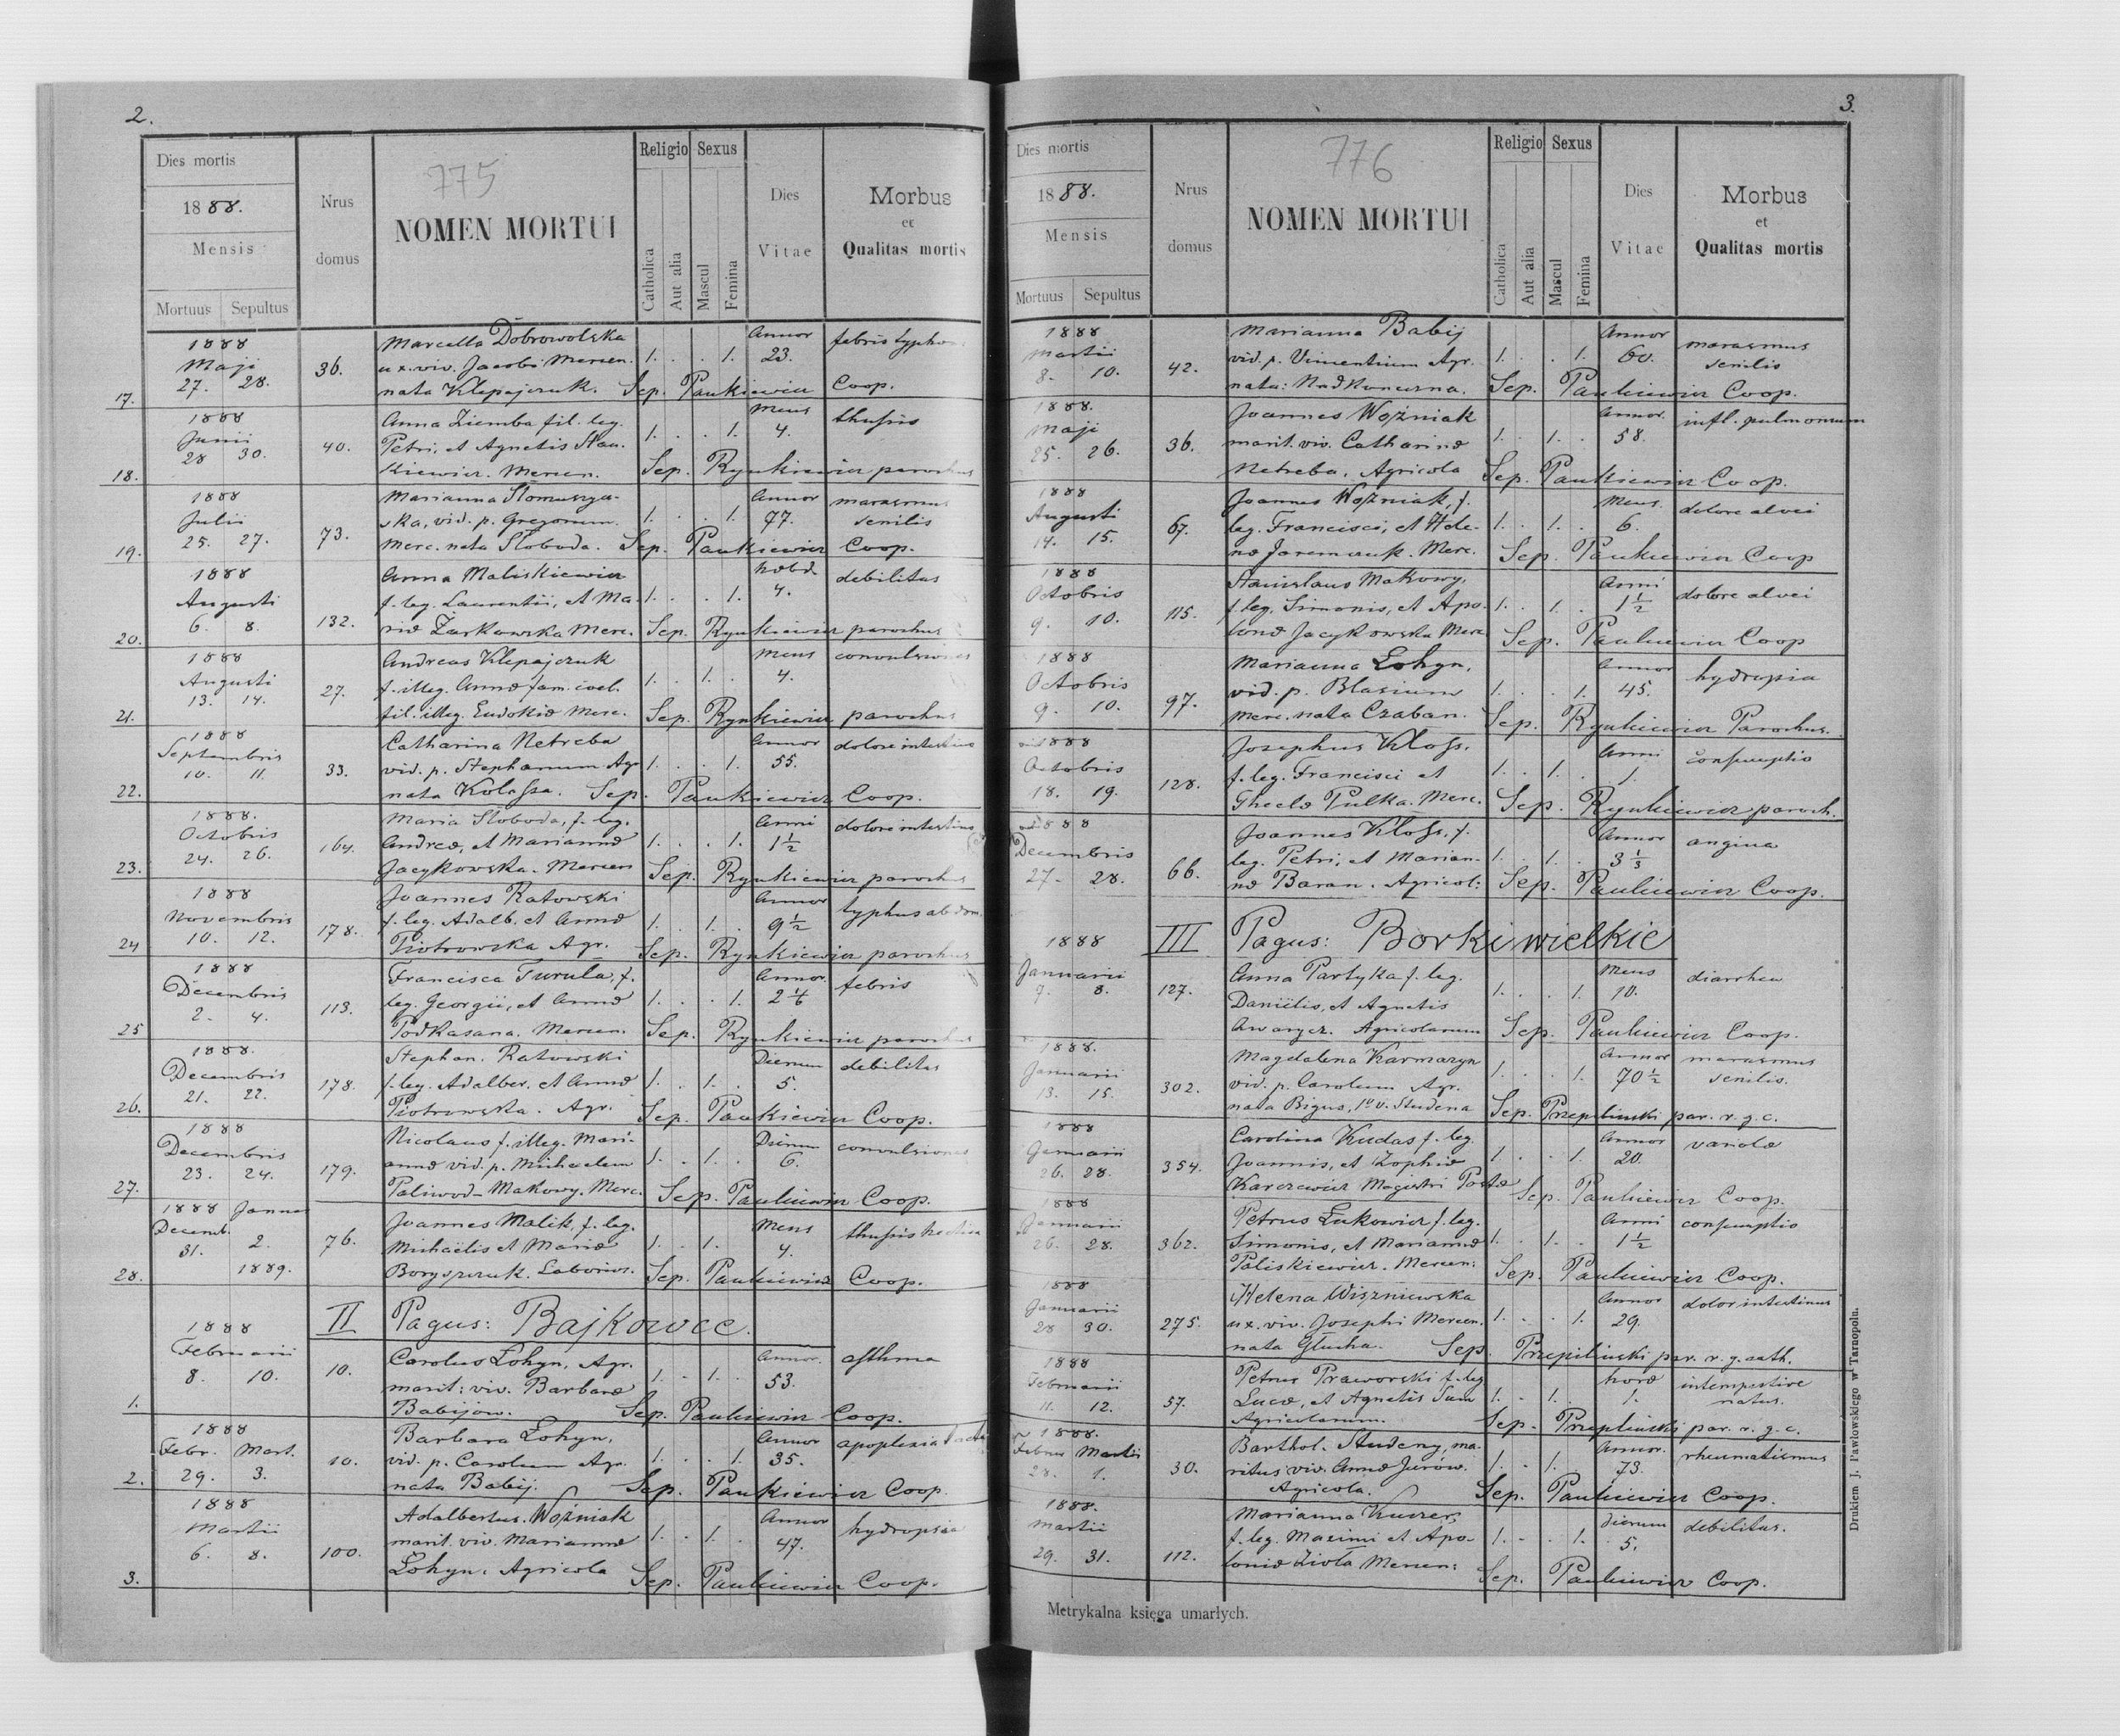 2.
775
Dies mortis
1888.
Mensis
Mortuus Sepultus
Nrus domus
NOMEN MORTUI
Religio
Catholica
Aut alia
Sexus
Mascul
Femina
Dies Vitae
Morbus
et
Qualitas mortis
17. 1888 Maji 27. 28. 36.
Marcella Dobrowolska 1. 1. Annor 23. febris
ux. viv. Jacobi Mercen.
nata Klepajczuk. Sep. Paukiewicz Coop.
18. 1888 Junii 28 30. 40.
Anna Ziemba fil. leg. 1. 1. Mens 4. thussis
Petri, et Agnetis Stan-
kiewicz. Mercen. Sep. Rynkiewicz parochus
19. 1888 Julii 25. 27. 73.
Marianna 1. 1. Annor 77. marasmus senilis
ska, vid. p. Gregorium.
Merc. nata Słoboda. Sep. Paukiewicz Coop.
20. 1888 Augusti 6. 8. 132.
Anna Maliskiewicz 1. 1. hebd. 4. debilitas
f. leg. Laurentii, et Ma-
riæ Żarkowska Merc. Sep. Rynkiewicz parochus
21. 1888 Augusti 13. 14. 27.
Andreas Klepajczuk 1. 1. Mens 4. convulsiones
f. illeg. Annæ fam. coel.
fil. illeg. Eudokiæ Merc. Sep. Rynkiewicz parochus
22. 1888 Septembris 10. 11. 33.
Catharina Netreba 1. 1. Annor 55. dolore intestino
vid. p. Stephanum Agr.
nata Kolassa. Sep. Paukiewicz Coop.
23. 1888. Octobris 24. 26. 164.
Maria Słoboda, f. leg. 1. 1. Anni 1½ dolore intestino
Andreæ, et Mariannæ
Jacykowska. Mercen Sep. Rynkiewicz parochus
24 1888 Novembris 10. 12. 178.
Joannes Ratowski 1. 1. Annor 9½ typhus abdom.
f. leg. Adalb. et Annæ
Piotrowska Agr. Sep. Rynkiewicz parochus
25 1888 Decembris 2. 4. 113.
Francisca Turula, f. 1. 1. Annor 2 febris
leg. Georgii, et Annæ
Podkasana. Mercen. Sep. Rynkiewicz parochus
26. 1888. Decembris 21. 22. 178.
Stephan. Ratowski 1. 1. Dierum 5. debilitas
f. leg. Adalber. et Annæ
Piotrowska. Agr. Sep. Paukiewicz Coop.
27. 1888 Decembris 23. 24. 179.
Nicolaus f. illeg. Mari- 1. 1. Dierum 6. convulsiones
annæ vid. p. Michaelem
Paliwod- Makowy. Merc. Sep. Paukiewicz Coop.
28. 1888 Decemb. 31. 2. 1889. 76.
Joannes Malik, f. leg. 1. 1. Mens 4. thussis hectica
Michaëlis et Mariæ
Boryszczuk. Sep. Paukiewicz Coop.
II Pagus: Bajkowce.
1. 1888 Februarii 8. 10. 10.
Carolus Łohyn, Agr. 1. 1. Annor. 53. asthma
marit: viv. Barbaræ
Babijow. Sep. Paukiewicz Coop.
2. 1888 Febr. Mart. 29. 3. 10.
Barbara Łohyn, 1. 1. Annor 35. apoplexia
vid. p. Carolum Agr.
nata Babij. Sep. Paukiewicz Coop.
3. 1888 Martii 6. 8. 100.
Adalbertus. Woźniak 1. 1. Annor 47. hydropsia
marit. viv. Mariannæ
Łohyn. Agricola Sep. Paukiewicz Coop.
3.
776
Dies mortis
1888.
Mensis
Mortuus Sepultus
Nrus domus
NOMEN MORTUI
Religio
Catholica
Aut alia
Sexus
Mascul
Femina
Dies Vitae
Morbus
et
Qualitas mortis
1888 Martii 8. 10. 42.
Marianna Babij 1. 1. Annor 60. marasmus senilis
vid. p. Vincentium Agr.
nata: Sep. Paukiewicz Coop.
1888. Maji 25. 26. 36.
Joannes Woźniak 1. 1. Annor. 58. infl. pulmonum
marit. viv. Catharinæ
Netreba. Agricola Sep. Paukiewicz Coop.
1888 Augusti 14. 15. 67.
Joannes Woźniak, f. 1. 1. Mens. 6. dolore alvei
leg. Francisci, et Hele-
næ Merc. Sep. Paukiewicz Coop
1888 Octobris 9. 10. 115.
Stanislaus Makowy. 1. 1. Anni 1½ dolore alvei
f. leg. Simonis, et Apo-
lonæ Jacykowska Merc. Sep. Paukiewicz Coop
1888 Octobris 9. 10. 97.
Marianna Łohyn, 1. 1. Annor 45. hydropsia
vid. p. Blasium
Merc. nata Czaban. Sep. Rynkiewicz Parochus.
1888 Octobris 18. 19. 128.
Josephus Kloss. 1. 1. Anni 1. consumptio
f. leg. Francisci et
Theclæ Pulka. Merc. Sep. Rynkiewicz paroch.
1888 Decembris 27. 28. 66.
Joannes Kloss, f. 1. 1. Annor 3⅓ angina
leg. Petri, et Marian-
næ Baran. Agricol: Sep. Paukiewicz Coop.
III Pagus: Borki wielkie
1888 Januarii 7. 8. 127.
Anna Partyka f. leg. 1. 1. Mens 10. diarrhea
Daniëlis, et Agnetis
Agricolarum Sep. Paukiewicz Coop.
1888. Januarii 13. 15. 302.
Magdalena Karmazyn 1. 1. Annor 70½ marasmus senilis.
vid. p. Carolum Agr.
nata Bigus, 1º v. Studena Sep. par. r. g. c.
1888 Januarii 26. 28. 354.
Carolina Kudas f. leg. 1. 1. Annor 20. variolæ
Joannis, et Zophiæ
Karczewicz Magistri Postæ Sep. Paukiewicz Coop.
1888 Januarii 26. 28. 362.
Petrus Łukowicz f. leg. 1. 1. Anni 1½ consumptio
Simonis, et Mariannæ
Paliskiewicz. Mercen: Sep. Paukiewicz Coop.
1888 Januarii 28 30. 275.
Helena Wiszniewska 1. 1. Annor 29. dolor intestinus
ux. viv. Josephi Mercen.
nata Głucha. Sep. par. r. g. cath.
1888 Februarii 11. 12. 57.
Petrus Praworski f. leg 1. 1. horæ 1. intempestive natus.
Lucæ, et Agnetis Sum
Agricolarum. Sep. par. r. g. c.
1888. Februa Martii 28. 1. 30.
Barthol. Studeny, ma- 1. 1. Annor. 73. rheumatismus
ritus viv. Annæ Jurów.
Agricola. Sep. Paukiewicz Coop.
1888. Martii 29. 31. 112.
Marianna Kuczer, 1. 1. dierum 5. debilitas.
f. leg. Maximi et Apo-
loniæ Zioła Mercen: Sep. Paukiewicz Coop.
Metrykalna księga umarłych.
Drukiem J. Pawłowskiego w Tarnopolu.